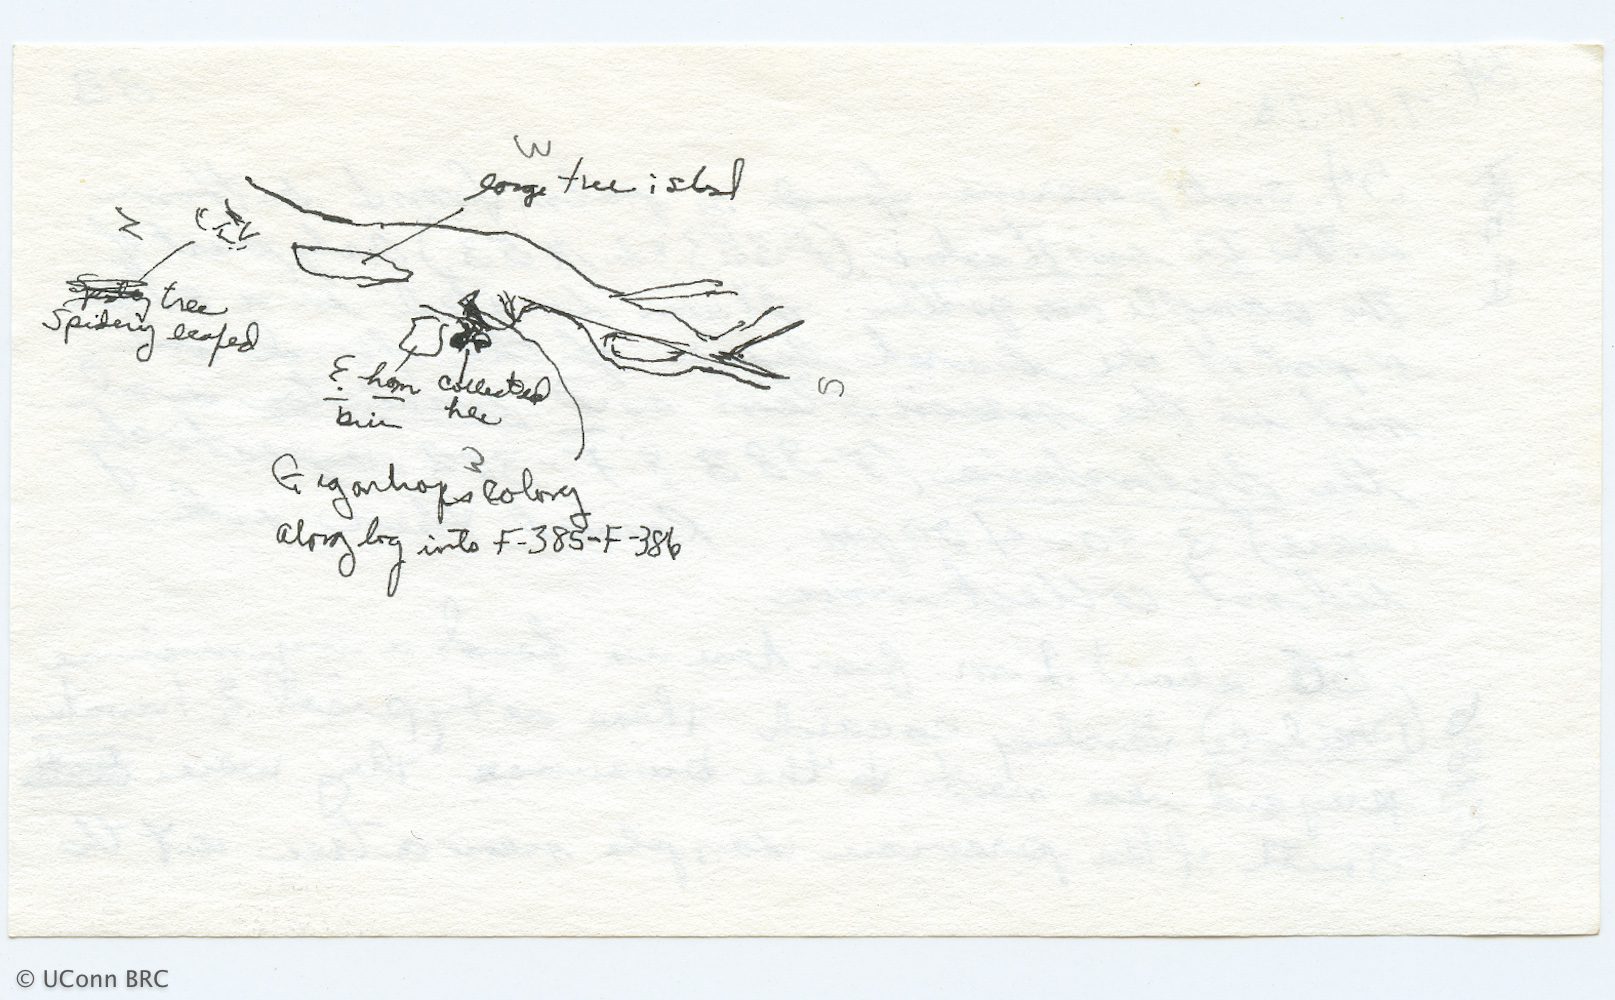 W
large tree island
N
tree
Spidery leafed
E. hom collected
here
S
Gigarhops colony
along log into F-385-F-386
© UConn BRC